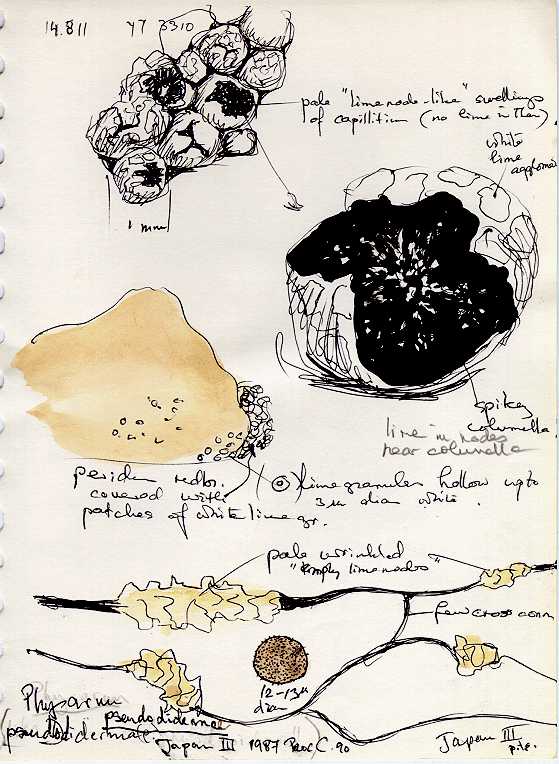 14.811 YY 3310
pale "lime node-like" swellings
of capillitium (no lime in them)
white
lime
1 mm
spikey
columella
lime in nodes
near columella
peridium
covered with
patches of white lime gr.
lime granules hollow up to
3µ diam white.
pale wrinkled
"empty lime nodes"
few cross conn
12-13µ
diam
Physarum
Japan III 1987
Japan III